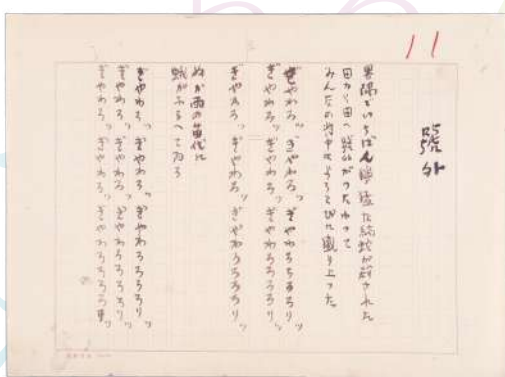 11
號外
界隈でいちばん獰猛な縞蛇が殺された
田から田へ號外がつたわって
みんなの背中はよろこびに盛り上った
ぎやわろッ ぎやわろッ ぎやわろろろろりッ
ぎやわろッ ぎやわろッ ぎやわろろろろりッ
ぎやわろッ ぎやわろッ ぎやわろろろろりッ
ぬか雨の苗代に
蛾がふるへてゐる
ぎやわろッ ぎやわろッ ぎやわろろろろりッ
ぎやわろッ ぎやわろッ ぎやわろろろろりッ
ぎやわろッ ぎやわろッ ぎやわろろろろりッ